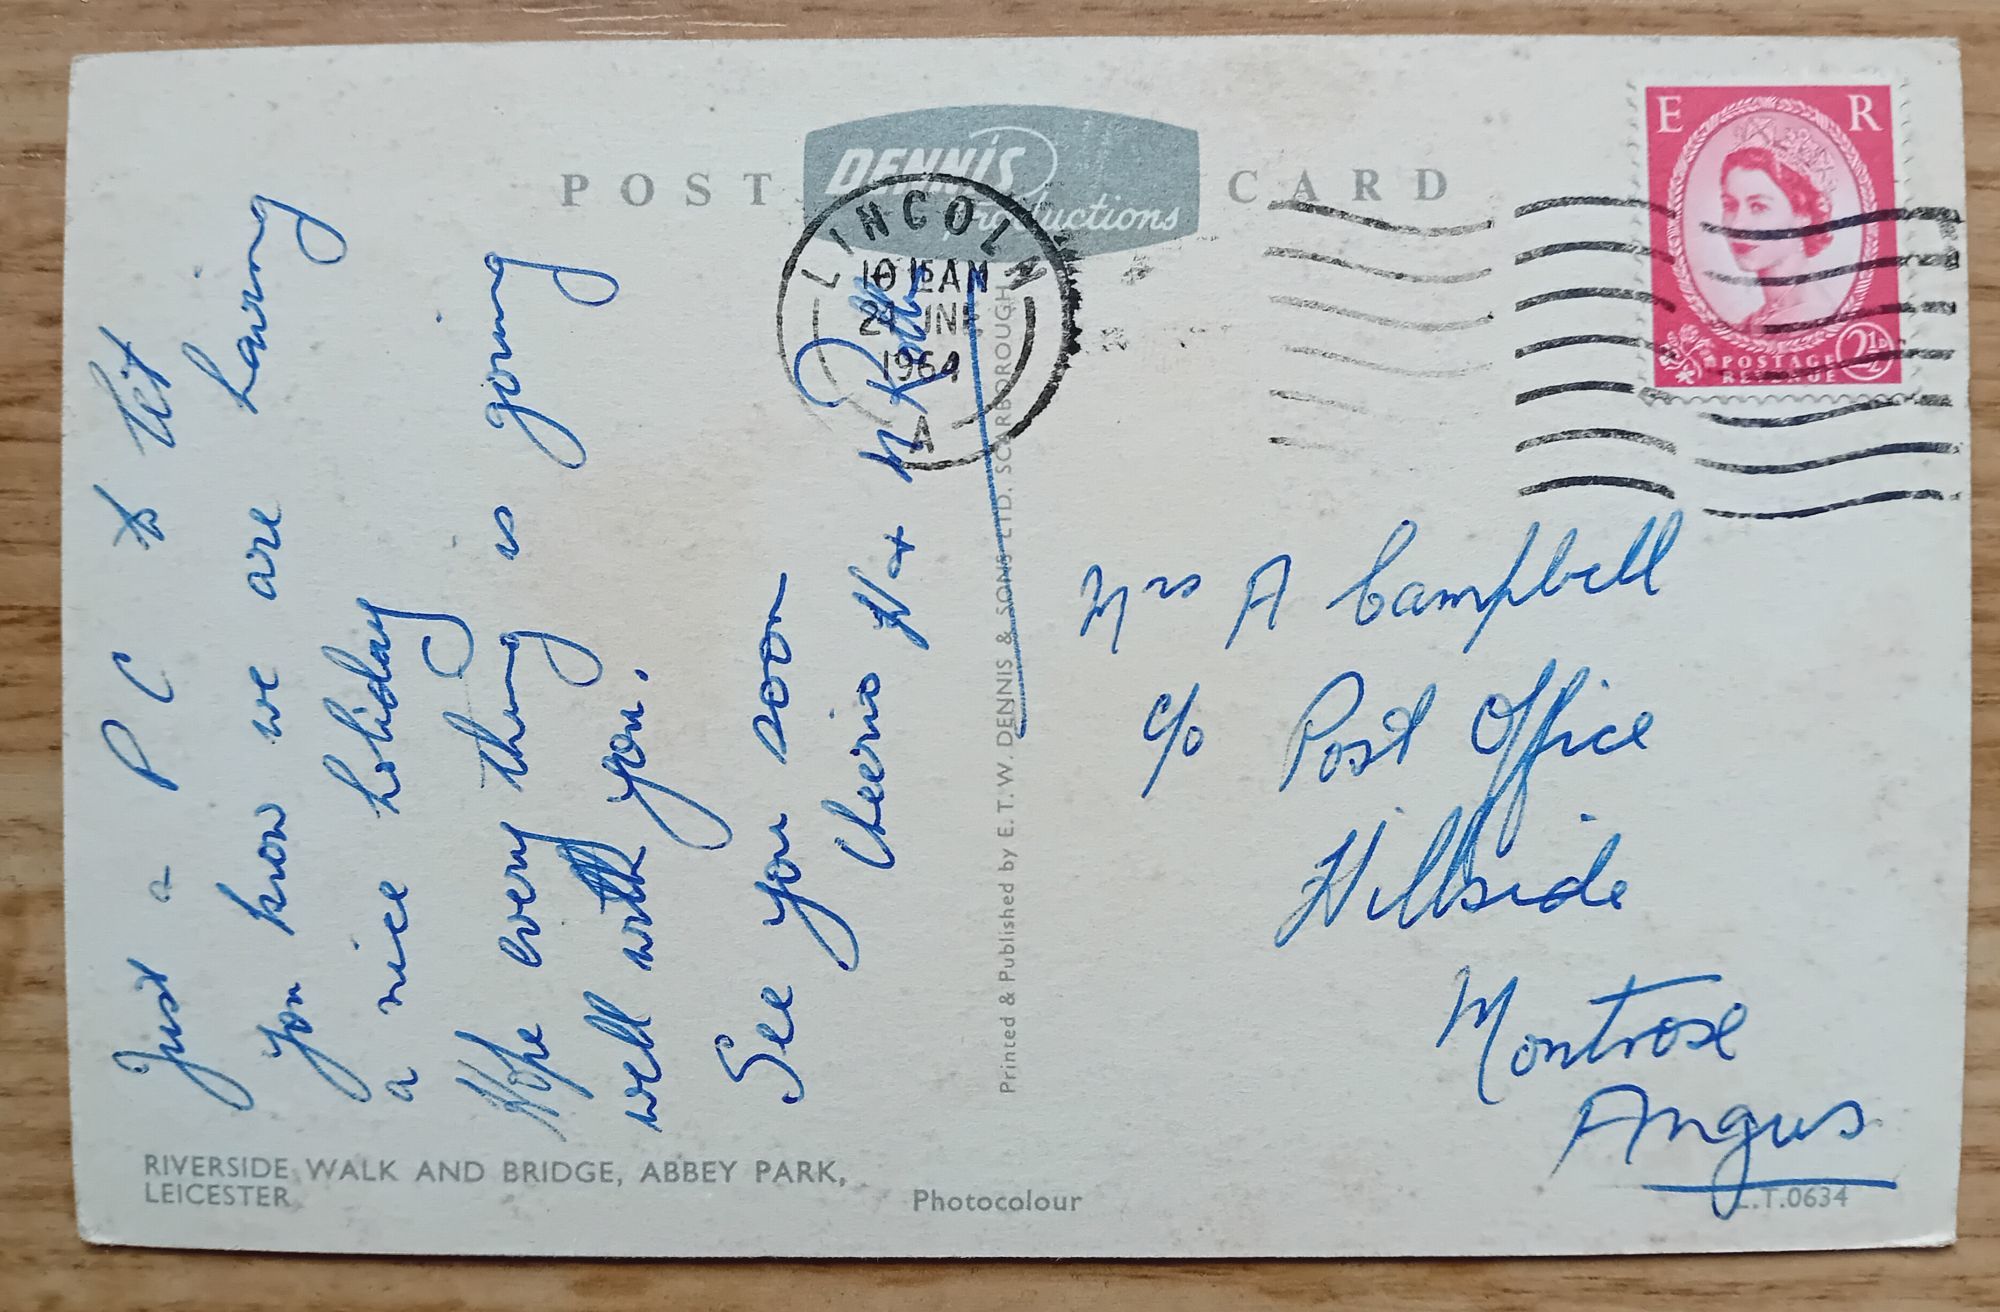 POST CARD
DENNIS
Productions
LINCOLN
10 15 AM
JNE
1964
A
E R
POSTAGE
REVENUE
2½D
Just a P C to let
you know we are having
a nice holiday
Hope every thing is going
well with you.
See you soon
Cheerio H +
Printed & Published by E. T. W. DENNIS & SONS LTD. SCARBOROUGH
Mrs A Campbell
c/o Post Office
Hillside
Montrose
Angus
RIVERSIDE WALK AND BRIDGE, ABBEY PARK,
LEICESTER
Photocolour
L.T.0634